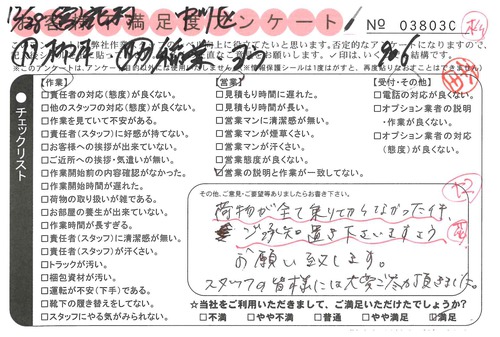 お客様不満足度アンケート
No 038030
【作業】
□責任者の対応(態度)が良くない。
□他のスタッフの対応(態度)が良くない。
□作業を見ていて不安がある。
□責任者(スタッフ)に好感が持てない。
□お客様への挨拶が出来ていない。
□ご近所への挨拶・気遣いが無い。
□作業開始前の内容確認がなかった。
□作業開始時間が遅れた。
□荷物の取り扱いが雑である。
□お部屋の養生が出来ていない。
□作業時間が長すぎる。
□責任者(スタッフ)に清潔感が無い。
□責任者(スタッフ)が汗くさい。
□トラックが汚い。
□梱包資材が汚い。
□運転が不安(下手)である。
□靴下の履き替えをしてない。
□スタッフにやる気がみられない。
【営業】
□見積もり時間に遅れた。
□見積もり時間が長い。
□営業マンに清潔感が無い。
□営業マンが煙草くさい。
□営業マンが汗くさい。
□営業態度が良くない。
☑営業の説明と作業が一致してない。
【受付・その他】
□電話の対応が良くない。
□オプション業者の説明
・作業が良くない。
□オプション業者の対応
(態度)が良くない。
チェックリスト
その他、ご意見・ご要望等ありましたらお書き下さい。
荷物が全て乗り切らなかった件、
ご承知置き下さいますよう
お願い致します。
スタッフの皆様には大変ご苦労頂きました。
☆当社をご利用いただきまして、ご満足いただけたでしょうか?
□不満 □やや不満 □普通 □やや満足 ☑満足